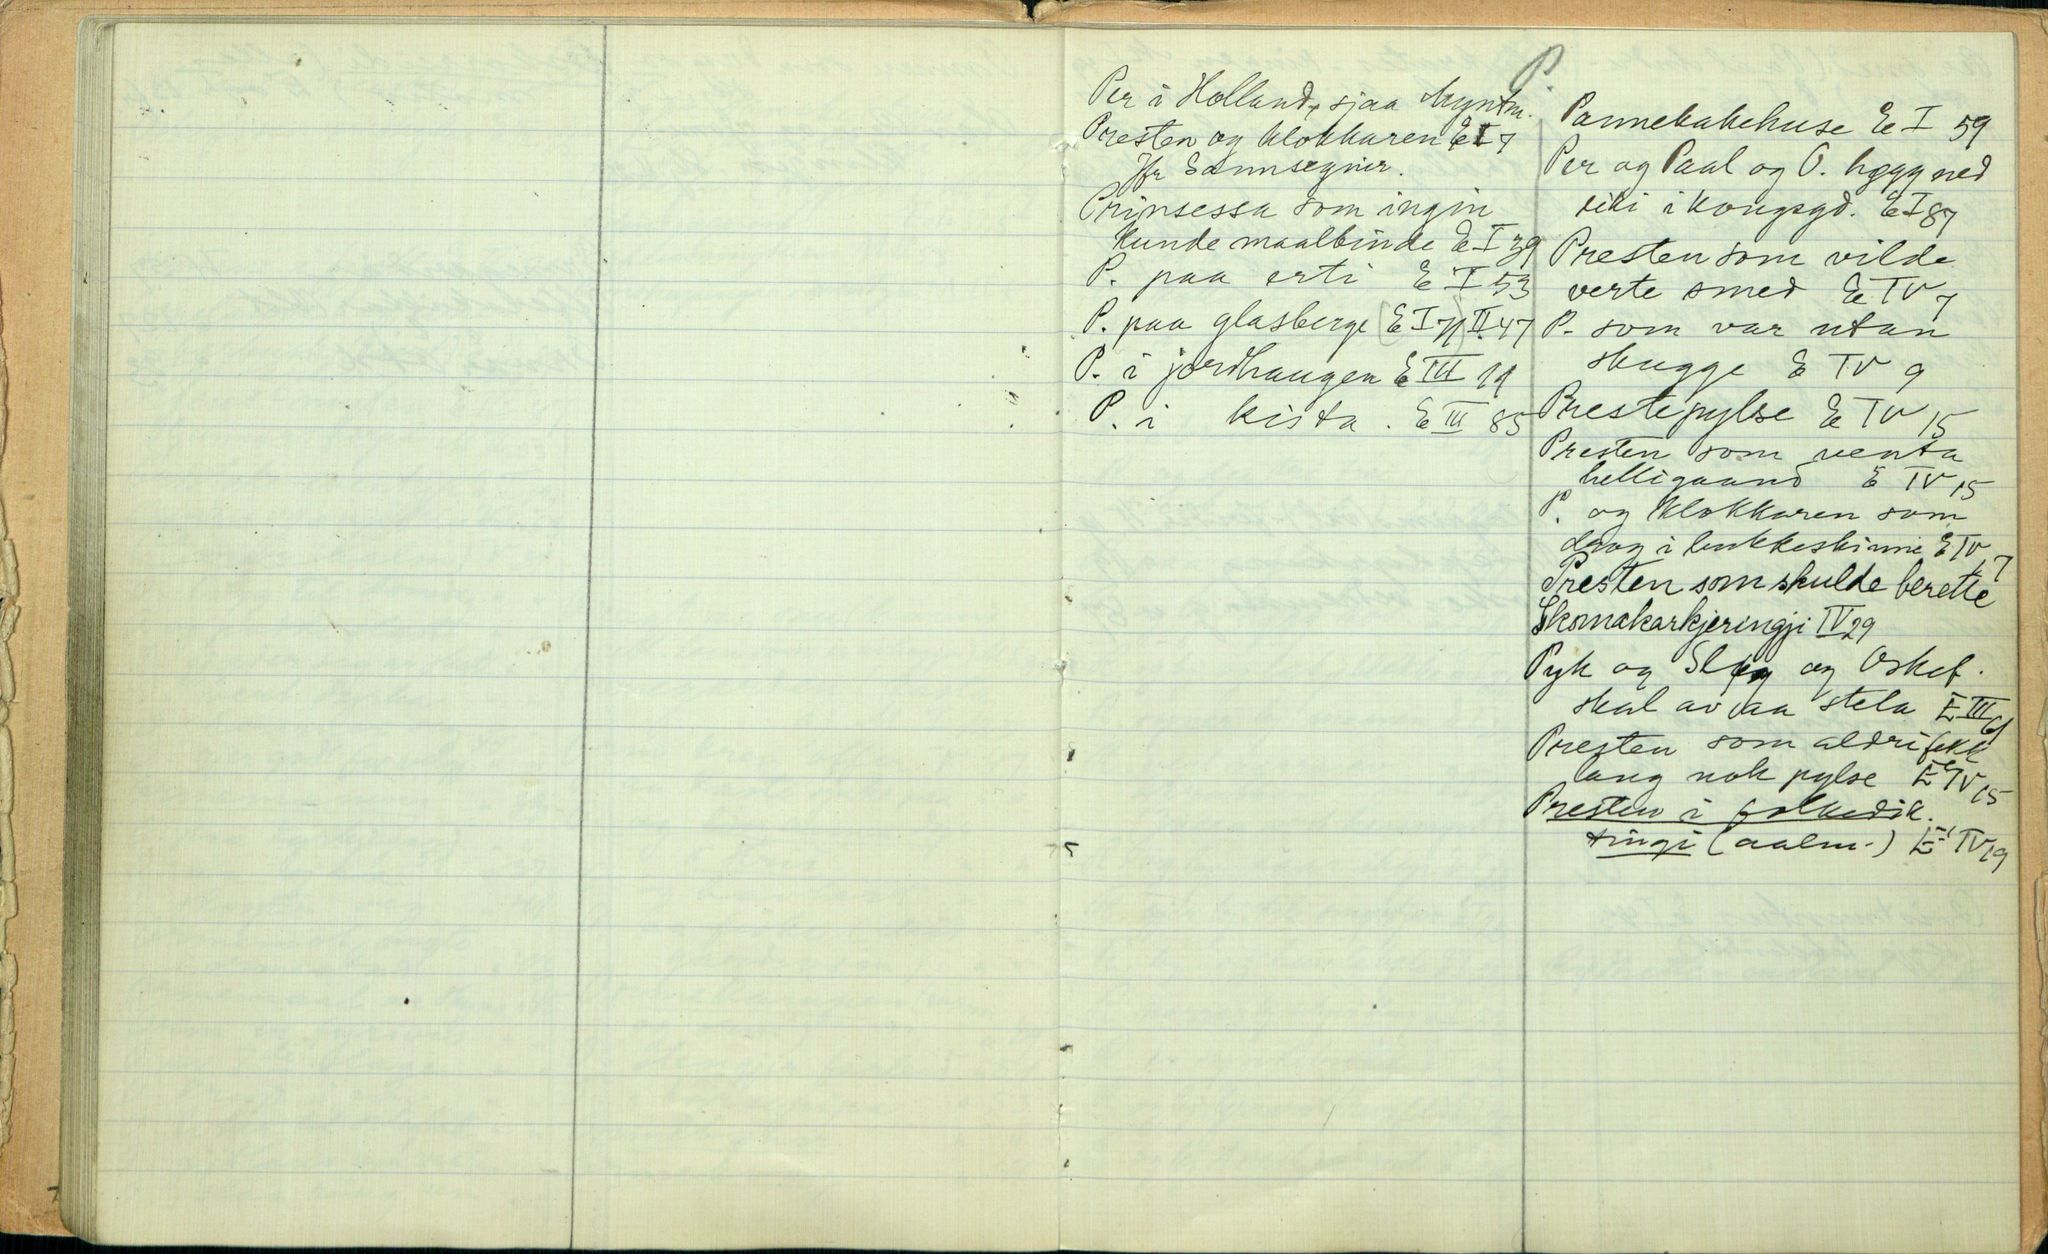 P.
Per i Holland, sjaa
Presten og klokkaren E I 7
Jfr Sannsegner.
Prinsessa som ingin
kunde maalbinde E I 39
P. paa erti E I 53
P. paa glasberge E I 71 II 47
P. i jordhaugen E III 19
P. i kista. E III 85
Pannekakehuse E I 59
Per og Paal og O. hggg ned
eiki i kongsgd. E I 87
Presten som vilde
verte smed E IV 7
P. som var utan
skugge E IV 9
Prestepylse E IV 15
Presten som venta
helligaand E IV 15
P. og klokkaren som
drog i bukkeskinne E IV 7
Presten som skulde berette
Skomakarkjeringji IV 29
Pyk og og Oskef.
skal av aa stela E III 61
Presten som aldri fekk
lang nok pylse E IV 15
Presten i folkedik.
tingi (aalm.) E IV 19